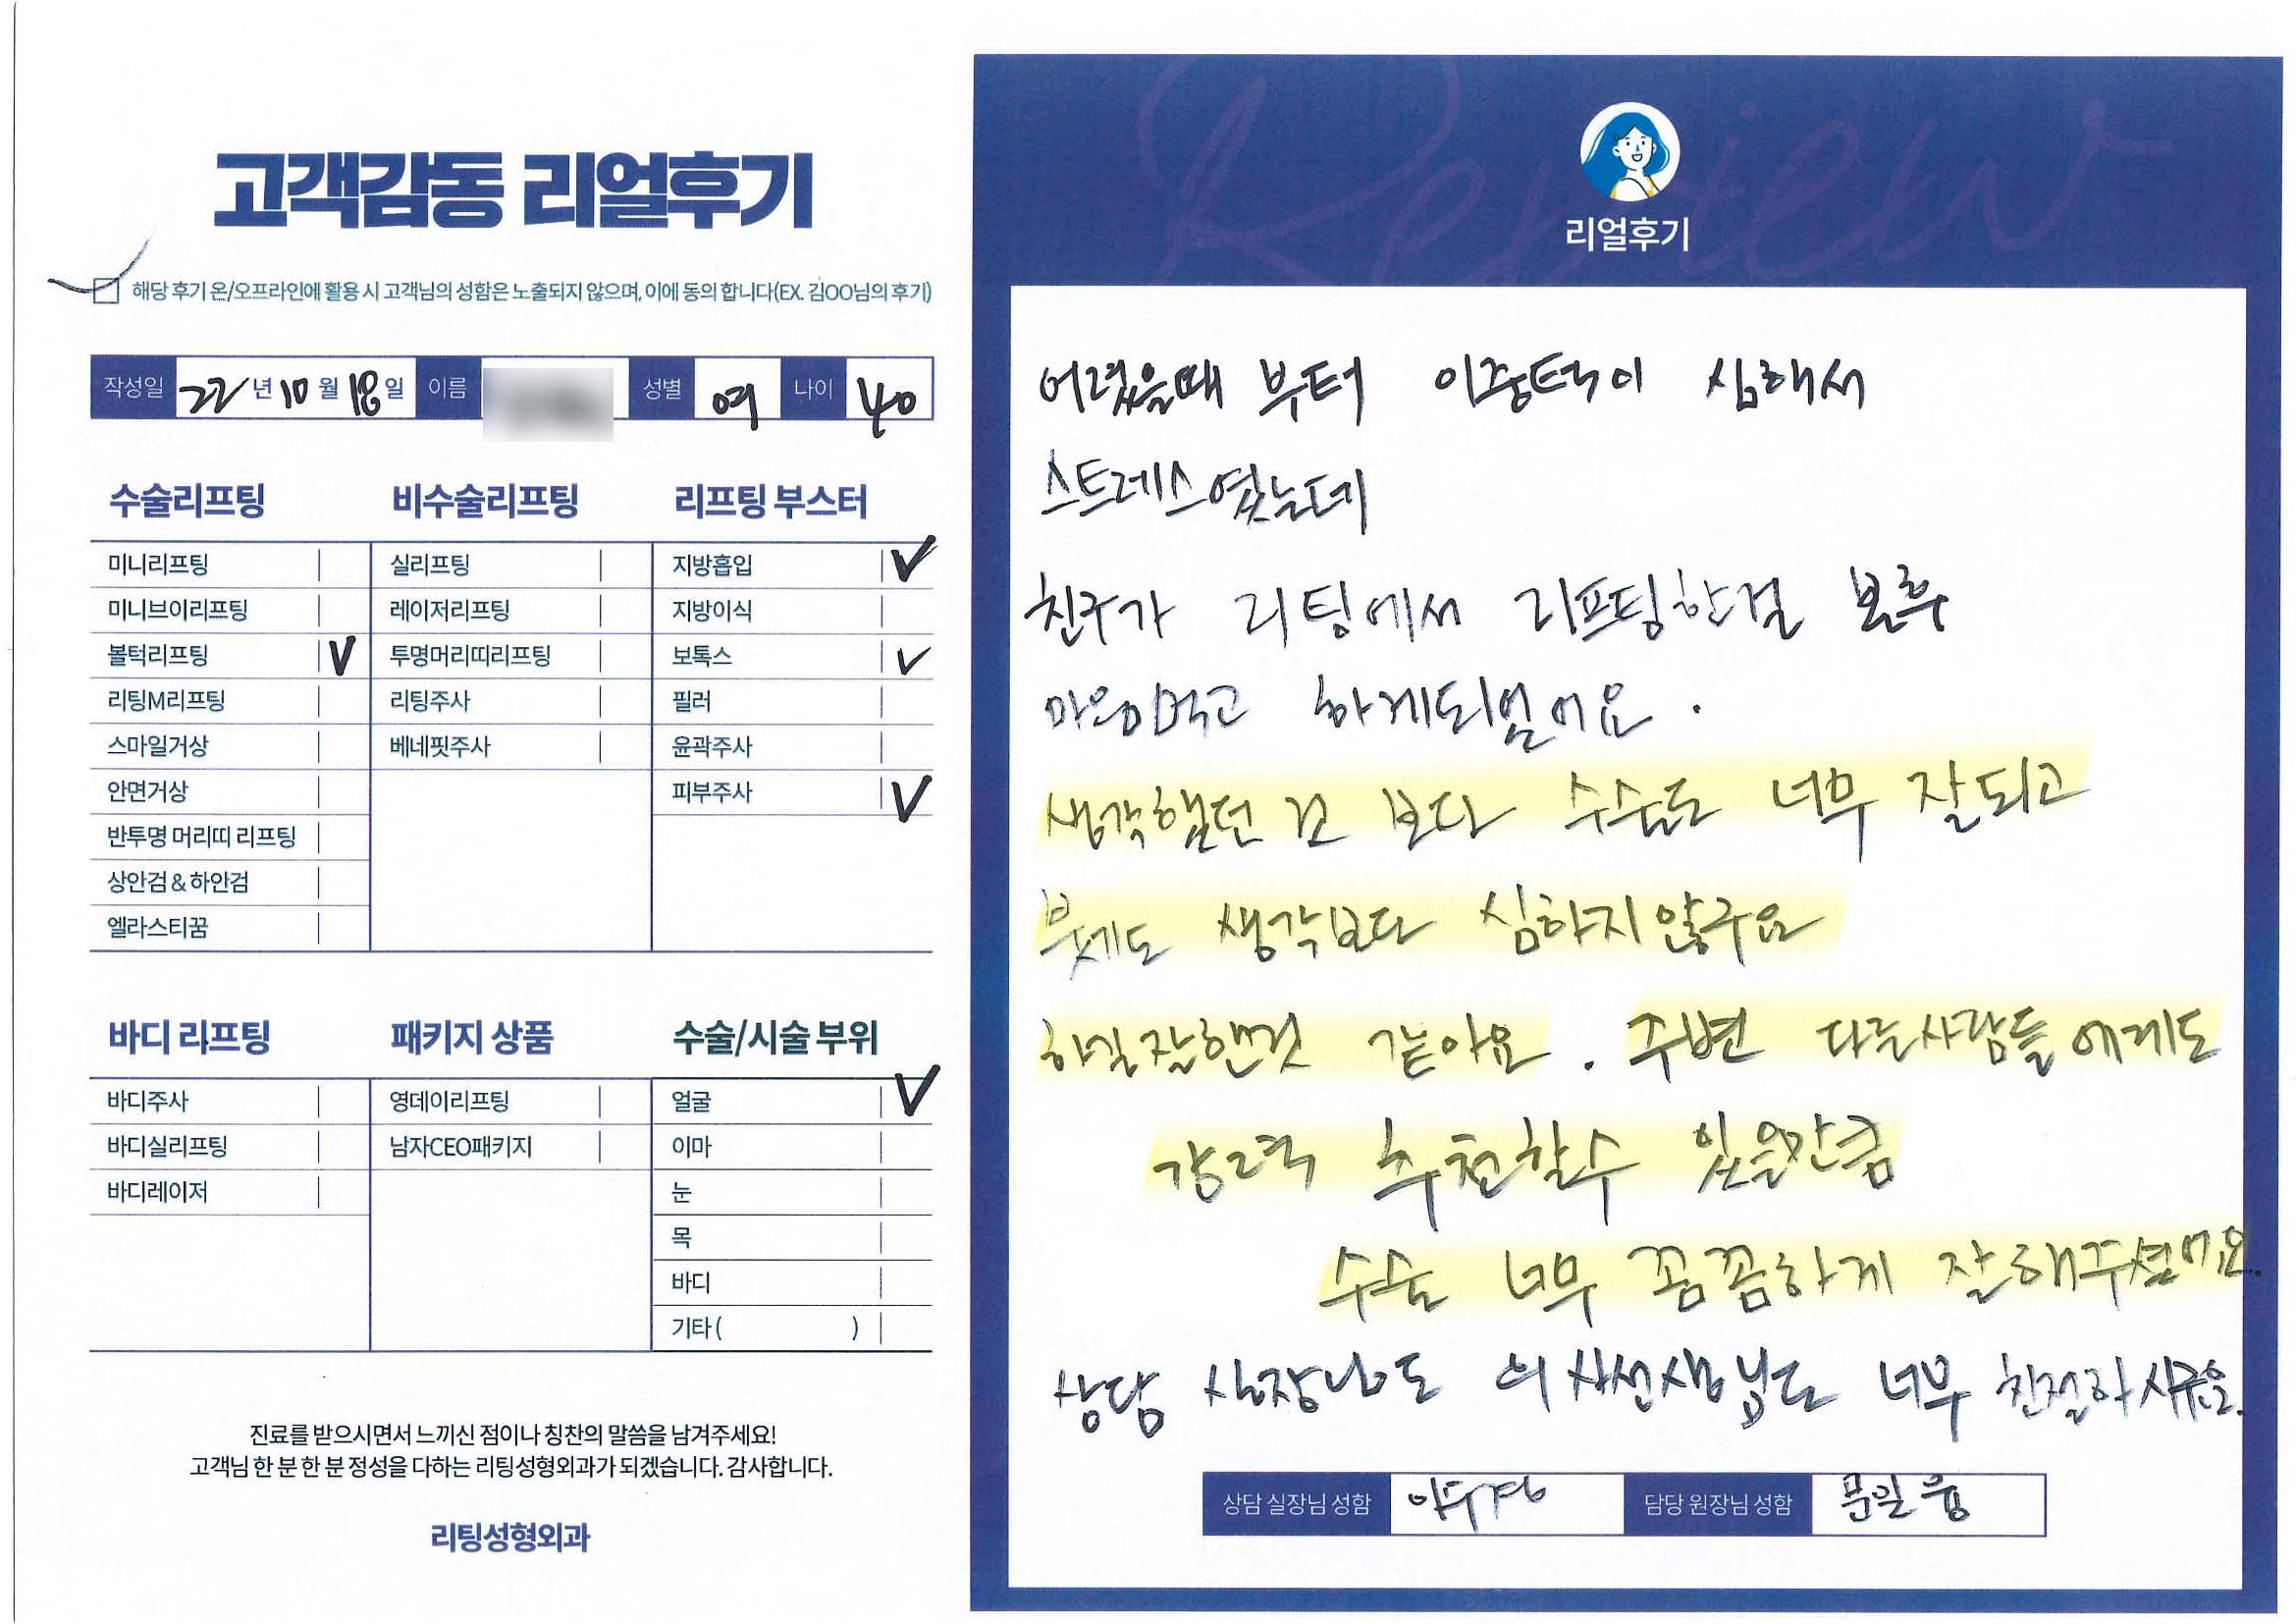 고객감동 리얼후기
해당 후기 온/오프라인에 활용 시 고객님의 성함은 노출되지 않으며, 이에 동의 합니다(EX. 김OO님의 후기)
작성일 22년 10월 18일 이름 성별 여 나이 40
수술리프팅
미니리프팅
미니브이리프팅
볼턱리프팅 V
리팅M리프팅
스마일거상
안면거상
반투명 머리띠 리프팅
상안검 & 하안검
엘라스티꿈
비수술리프팅
실리프팅
레이저리프팅
투명머리띠리프팅
리팅주사
베네핏주사
리프팅 부스터
지방흡입 V
지방이식
보톡스 V
필러
윤곽주사
피부주사 V
바디 리프팅
바디주사
바디실리프팅
바디레이저
패키지 상품
영데이리프팅
남자CEO패키지
수술/시술 부위
얼굴 V
이마
눈
목
바디
기타 ( )
진료를 받으시면서 느끼신 점이나 칭찬의 말씀을 남겨주세요!
고객님 한 분 한 분 정성을 다하는 리팅성형외과가 되겠습니다. 감사합니다.
리팅성형외과
Review
리얼후기
어렸을때 부터 이중턱이 심해서
스트레스였는데
친구가 리팅에서 리프팅한걸 본후
마음먹고 하게되었어요.
생각했던 것 보다 수술도 너무 잘되고
붓기도 생각보다 심하지않구요
하길잘한것 같아요. 주변 다른사람들에게도
강력 추천할수 있을만큼
수술 너무 꼼꼼하게 잘해주셨어요.
상담 실장님도 의사선생님도 너무 친절하시구요.
상담 실장님 성함 담당 원장님 성함 문일웅